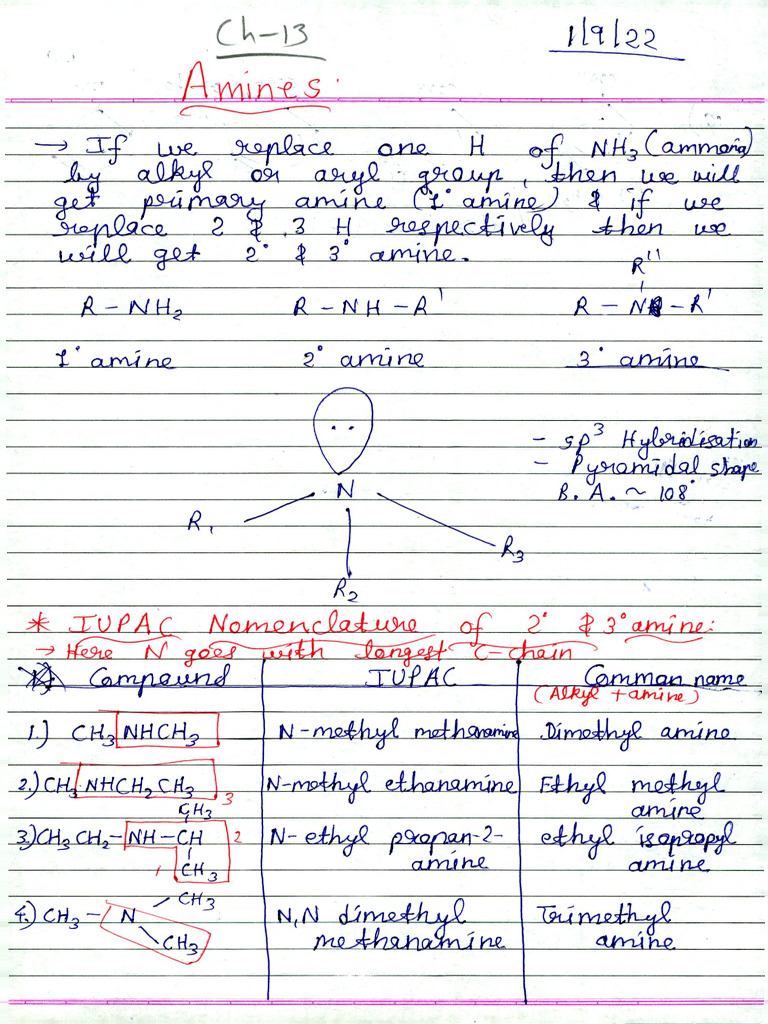 Ch-13
1/9/22
Amines:
→ If we replace one H of NH₃ (ammonia)
by alkyl or aryl group, then we will
get primary amine (1° amine) & if we
replace 2 & 3 H respectively then we
will get 2° & 3° amine.
R''
R - NH₂ R - NH - R' R - N - R'
1° amine 2° amine 3° amine
- sp³ Hybridisation
- Pyramidal shape
B. A. ~ 108°
N
R₁
R₃
R₂
* IUPAC Nomenclature of 2° & 3° amine:
→ Here N goes with longest C-chain
Compound IUPAC Common name
(Alkyl + amine)
1.) CH₃ NHCH₃ N-methyl methanamine Dimethyl amine
2.) CH₃ NHCH₂CH₃ N-methyl ethanamine Ethyl methyl
amine
CH₃ 3
3.) CH₃CH₂-NH-CH 2 N-ethyl propan-2- ethyl isopropyl
amine amine
1 CH₃
CH₃
4.) CH₃ - N N,N dimethyl Trimethyl
CH₃ methanamine amine